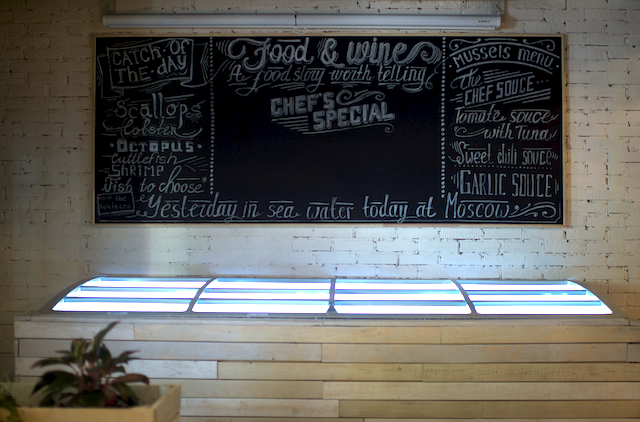 CATCH OF
THE DAY
Scallop
Lobster
OCTOPUS
Cuttlefish
SHRIMP
Fish to choose
Food & wine
A food story worth telling
CHEF'S
SPECIAL
Yesterday in sea water today at Moscow
MUSSELS MENU
The
CHEF SOUCE
Tomate souce
with Tuna
Sweet chili souce
GARLIC SOUCE